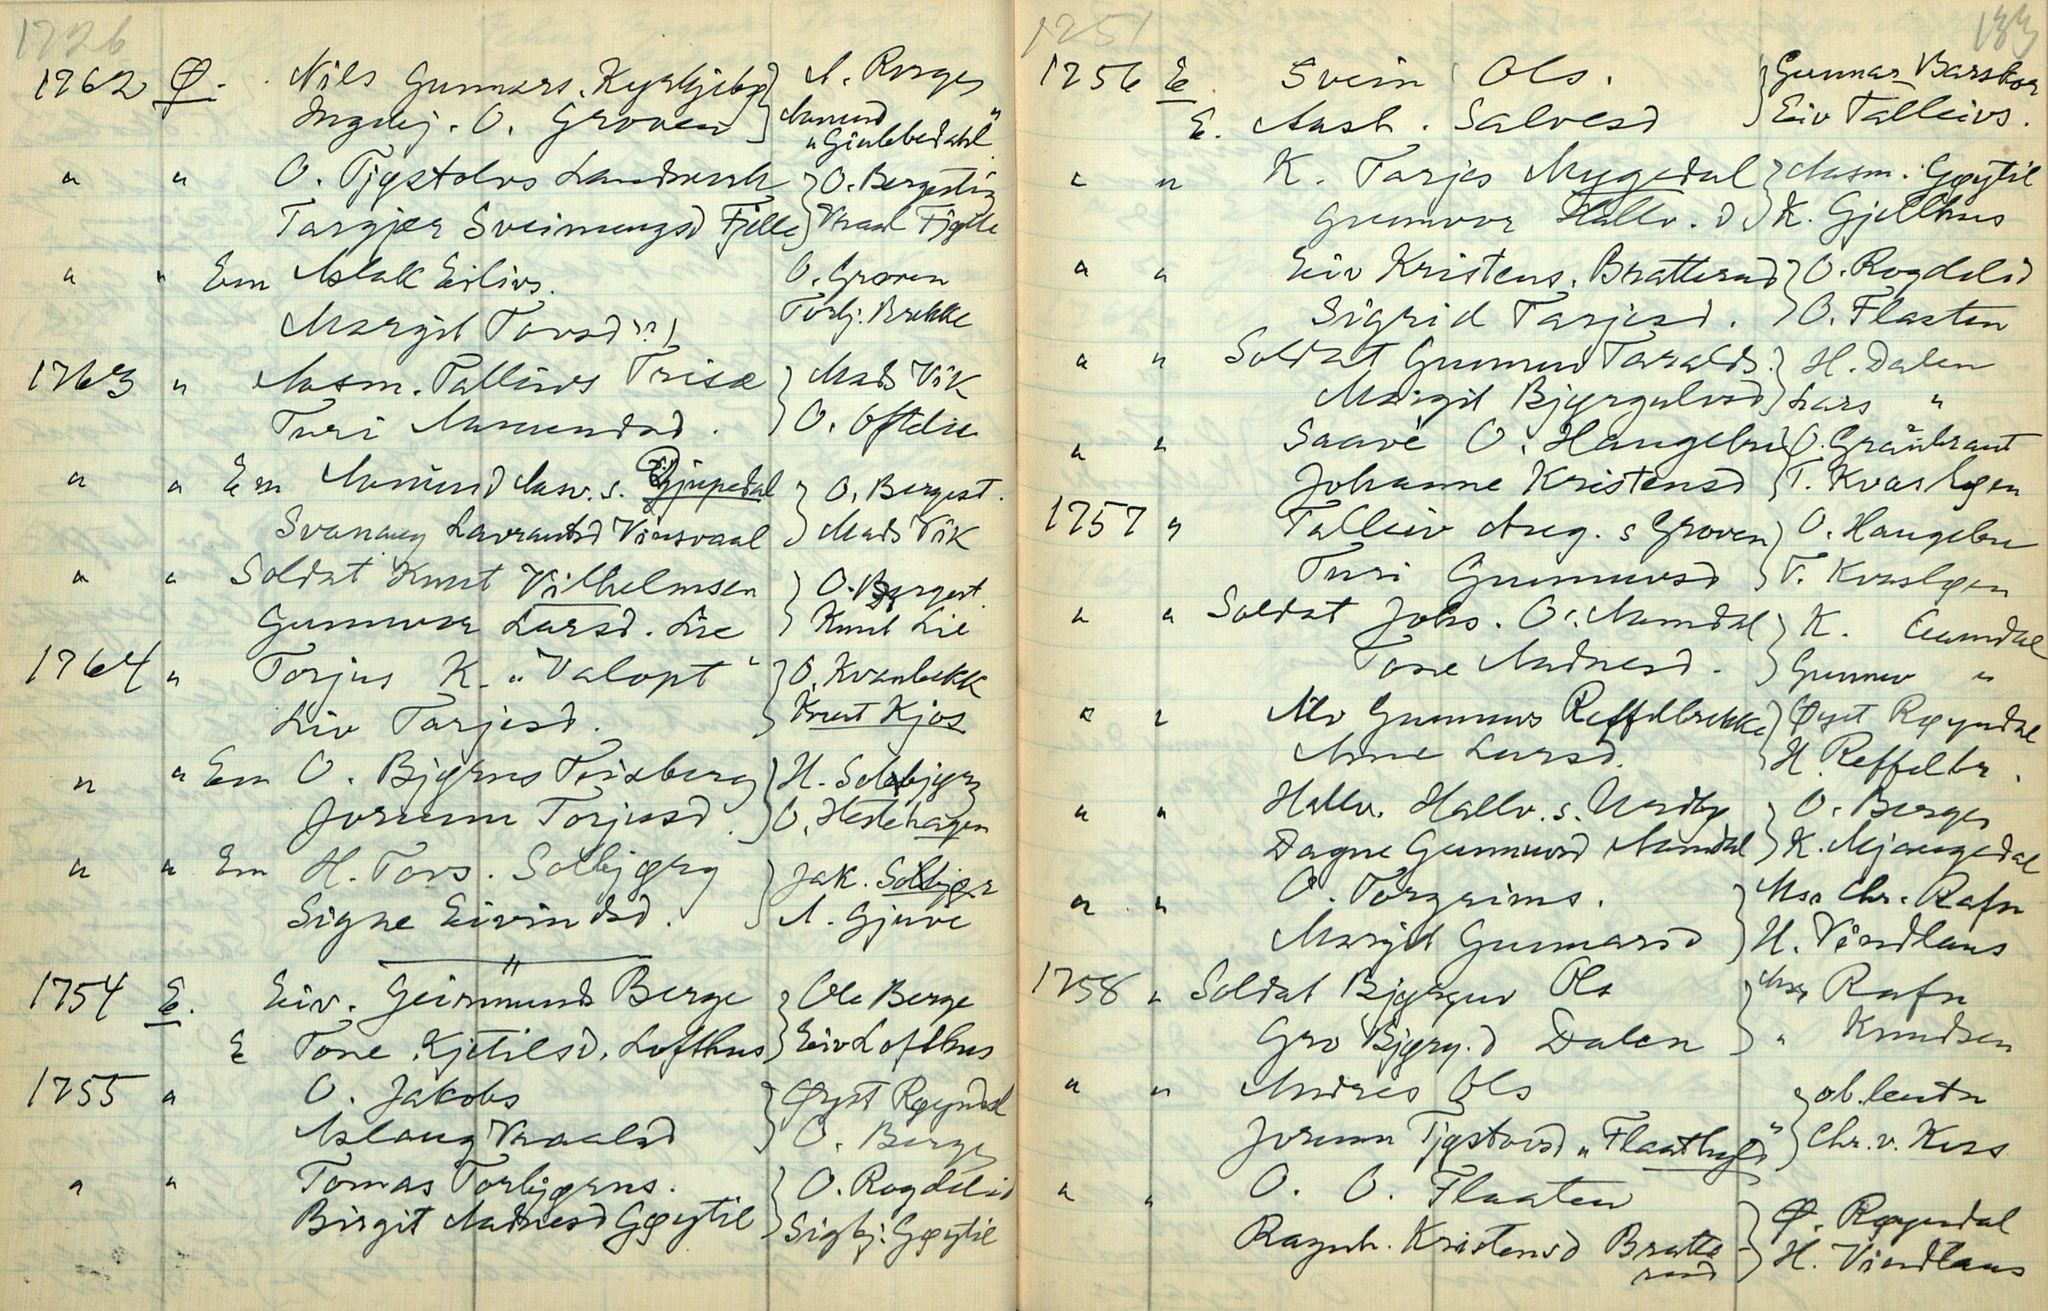 1726
1762 Ø. Nils Gunnars. Kyrkjebø } A. Borges
Ingebj. O. Groven } Aamund
" Gjubbedahl "
" " O. Tjøstolvs Landverk } O. Bergestig
Targjær Sveinungsd Fjelle } Vraal Fjølle
" " Em Aslak Eilivs. O. Groven
Margit Torsd (?) Torbj. Brekke
1763 " Aasm. Talleivs Trisæ } Mads Vik
Turi Aamundsd. } O. Oftelie
" " Em Aamund Aasv. s. Djupedal } O. Bergest.
Svanaug Lavrantsd Vinsvaal } Mads Vik
" " Soldat Knut Vilhelmsen } O. Bergest.
Gunnvor Larsd. Lie } Knut Lie
1764 " Torjus K. " Valopt " } O. Kvanbekk
Liv Tarjesd. } Knut Kjos
" " Em O. Bjørns Trisberg } H. Solbjørg
Jorunn Torjusd. } O. Hestehagen
" " Em H. Tors. Solbjørg } Jak. Solbjør
Signe Eivindsd. } A. Gjuve
"
1754 E. Eiv. Geirmunds Berge } Ole Berge
E Tone Kjetilsd. Lofthus } Eiv Lofthus
1755 " O. Jakobs } Øyst Røyndal
Aslaug Vraalsd } O. Berge
" " Tomas Torbjørns. } O. Rogdelid
Birgit Aadnesd Gøytil } Sigbj: Gøytil
1751
133
1756 E Svein Ols. } Gunnar Barskor
E. Aasl. Salvesd } Eiv Talleivs.
" " K. Tarjes Mygedal } Aasm. Gøytil
Gunnvor Hallv. d } K. Gjellhus
" " Eiv Kristens. Bratterud } O. Rogdelid
Sigrid Tarjesd. } O. Flaaten
" " Soldat Gunnar Taralds. } H. Dalen
Margit Bjørgulvsd } Lars "
" " Saave O. Haugebu } O. Gråubraut
Johanne Kristensd } T. Kvashogen
1757 " Talleiv Aug. s Groven } O. Haugebu
Turi Gunnarsd } T. Kvashogen
" " Soldat Johs. O. Aamdal } K. Aamdal
Tone Aadnesd. } Gunnar "
" " Alv Gunnars Reffelbrekke } Øyst Røyndal
Anne Larsd. } H. Reffelbr.
" " Hallv. Hallv. s. Urdbø } O. Berges
Dagne Gunnarsd Aamdal } K. Mjaugedal
" " O. Torgrims. } Msr Chr. Rafn
Margit Gunnarsd } H. Vindlaus
1758 " Soldat Bjørguv Ols } Msr Rafn
Gro Bjørg. d Dalen } " Knudsen
" " Andres Ols } ob. leutn
Jorunn Tjøstovsd " Flaathyl " } Chr. v. Koss
" " O. O. Flaaten } Ø. Røyndal
Ragnh. Kristensd Bratte
rud } H. Vindlaus